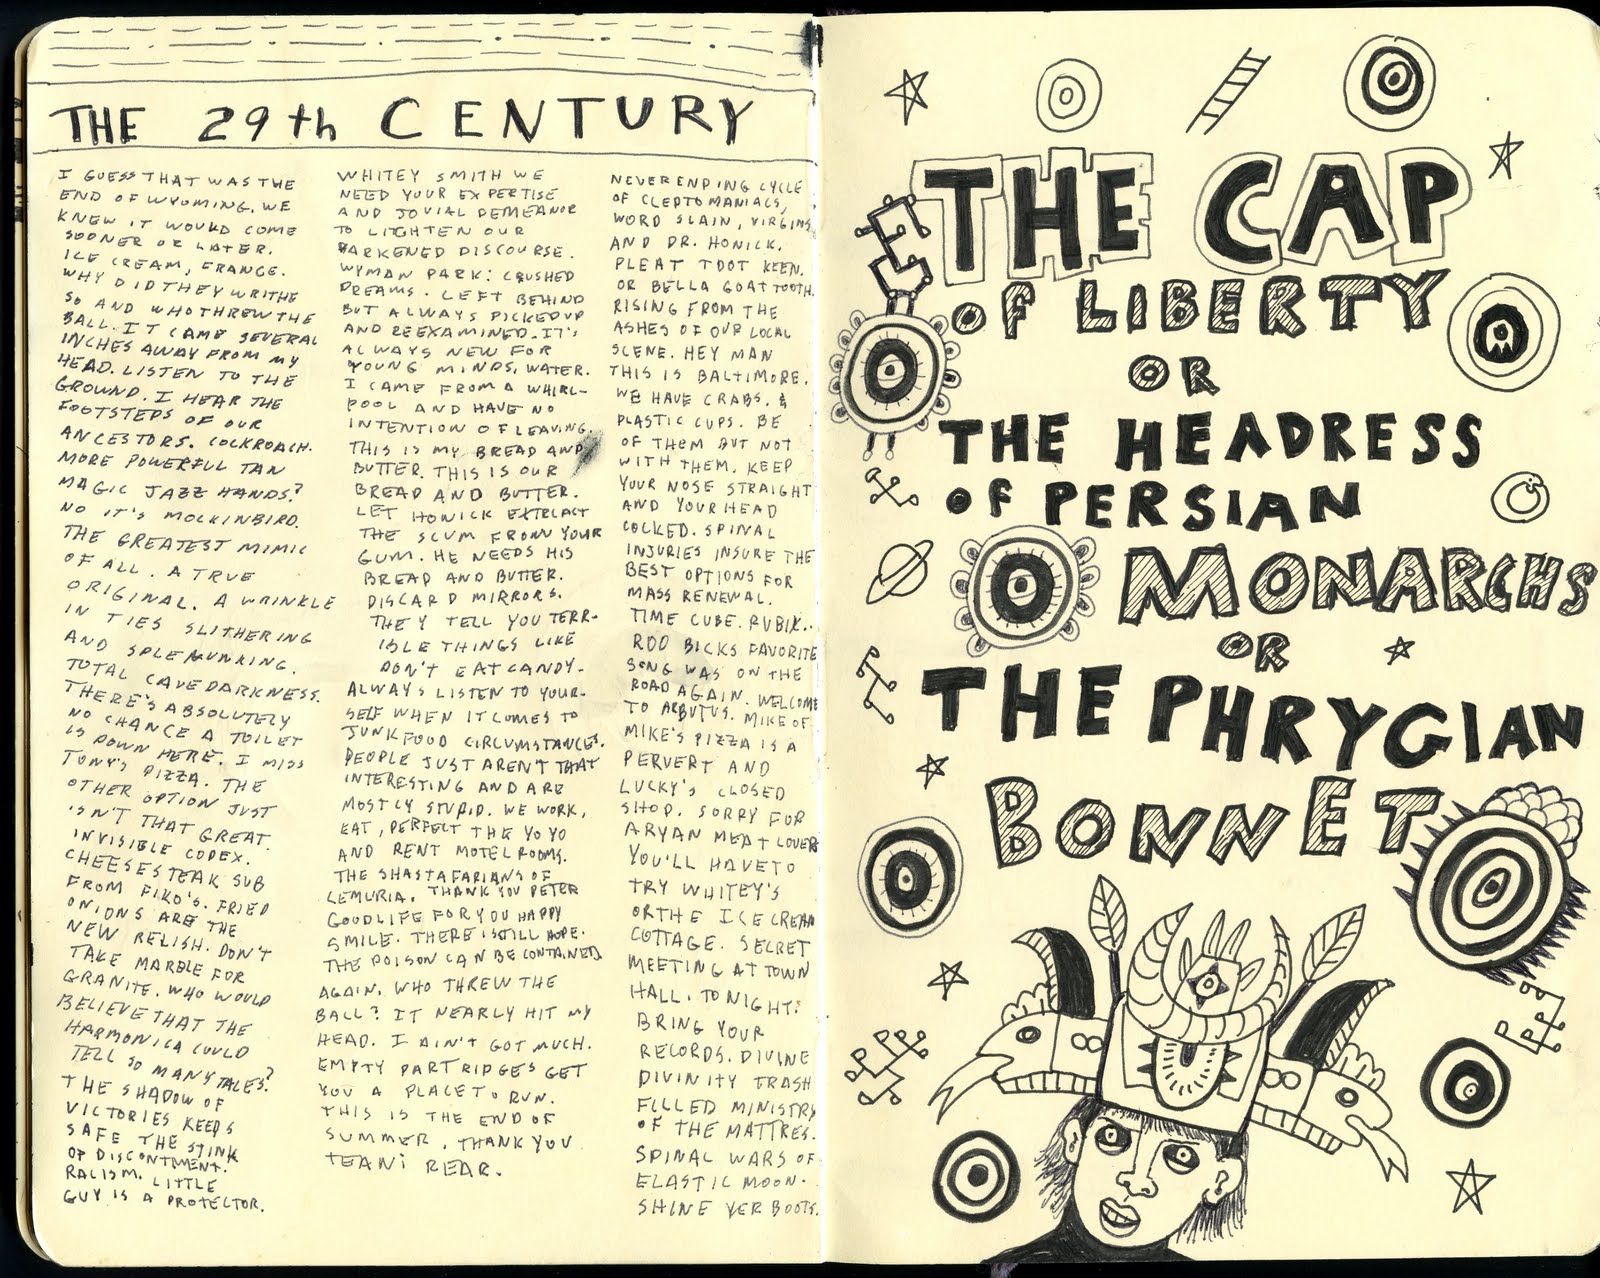 THE 29th CENTURY
I GUESS THAT WAS THE
END OF WYOMING. WE
KNEW IT WOULD COME
SOONER OR LATER.
ICE CREAM, FRANCE.
WHY DID THEY WRITHE
SO AND WHO THREW THE
BALL. IT CAME SEVERAL
INCHES AWAY FROM MY
HEAD. LISTEN TO THE
GROUND. I HEAR THE
FOOTSTEPS OF OUR
ANCESTORS. COCKROACH.
MORE POWERFUL TAN
MAGIC JAZZ HANDS?
NO IT'S MOCKINBIRD.
THE GREATEST MIMIC
OF ALL. A TRUE
ORIGINAL. A WRINKLE
IN TIES SLITHERING
AND SPLENUNKING.
TOTAL CAVE DARKNESS.
THERE'S ABSOLUTELY
NO CHANCE A TOILET
IS DOWN HERE. I MISS
TONY'S PIZZA. THE
OTHER OPTION JUST
ISN'T THAT GREAT.
INVISIBLE CODEX.
CHEESESTEAK SUB
FROM FIKO'S. FRIED
ONIONS ARE THE
NEW RELISH. DON'T
TAKE MARBLE FOR
GRANITE. WHO WOULD
BELIEVE THAT THE
HARMONICA COULD
TELL SO MANY TALES?
THE SHADOW OF
VICTORIES KEEPS
SAFE THE STINK
OF DISCONTIMENT.
RACISM. LITTLE
GUY IS A PROTECTOR.
WHITEY SMITH WE
NEED YOUR EXPERTISE
AND JOVIAL DEMEANOR
TO LIGHTEN OUR
DARKENED DISCOURSE.
WYMAN PARK: CRUSHED
DREAMS. LEFT BEHIND
BUT ALWAYS PICKED UP
AND REEXAMINED. IT'S
ALWAYS NEW FOR
YOUNG MINDS, WATER.
I CAME FROM A WHIRL-
POOL AND HAVE NO
INTENTION OF LEAVING.
THIS IS MY BREAD AND
BUTTER. THIS IS OUR
BREAD AND BUTTER.
LET HONICK EXTRACT
THE SCUM FROM YOUR
GUM. HE NEEDS HIS
BREAD AND BUTTER.
DISCARD MIRRORS.
THEY TELL YOU TERR-
IBLE THINGS LIKE
DON'T EAT CANDY.
ALWAYS LISTEN TO YOUR-
SELF WHEN IT COMES TO
JUNKFOOD CIRCUMSTANCES.
PEOPLE JUST AREN'T THAT
INTERESTING AND ARE
MOSTLY STUPID. WE WORK,
EAT, PERFECT THE YOYO
AND RENT MOTEL ROOMS.
THE SHASTAFARIANS OF
LEMURIA. THANK YOU PETER
GOODLIFE FOR YOU HAPPY
SMILE. THERE IS STILL HOPE.
THE POISON CAN BE CONTAINED
AGAIN. WHO THREW THE
BALL? IT NEARLY HIT MY
HEAD. I AIN'T GOT MUCH.
EMPTY PARTRIDGES GET
YOU A PLACE TO RUN.
THIS IS THE END OF
SUMMER. THANK YOU
TEANI REAR.
NEVERENDING CYCLE
OF CLEPTOMANIACS,
WORD SLAIN, VIRGINS
AND DR. HONICK.
PLEAT TOOT KEEN.
OR BELLA GOAT TOOTH.
RISING FROM THE
ASHES OF OUR LOCAL
SCENE. HEY MAN
THIS IS BALTIMORE.
WE HAVE CRABS. &
PLASTIC CUPS. BE
OF THEM BUT NOT
WITH THEM. KEEP
YOUR NOSE STRAIGHT
AND YOUR HEAD
COCKED. SPINAL
INJURIES INSURE THE
BEST OPTIONS FOR
MASS RENEWAL.
TIME CUBE. RUBIK.
ROD BICKS FAVORITE
SONG WAS ON THE
ROAD AGAIN. WELCOME
TO ARBUTUS. MIKE OF
MIKE'S PIZZA IS A
PERVERT AND
LUCKY'S CLOSED
SHOP. SORRY FOR
ARYAN MEAT LOVER
YOU'LL HAVE TO
TRY WHITEY'S
OR THE ICE CREAM
COTTAGE. SECRET
MEETING AT TOWN
HALL. TONIGHT!
BRING YOUR
RECORDS. DIVINE
DIVINITY TRASH
FILLED MINISTRY
OF THE MATTRES.
SPINAL WARS OF
ELASTIC MOON.
SHINE YER BOOTS.
THE CAP
OF LIBERTY
OR
THE HEADRESS
OF PERSIAN
MONARCHS
OR
THE PHRYGIAN
BONNET